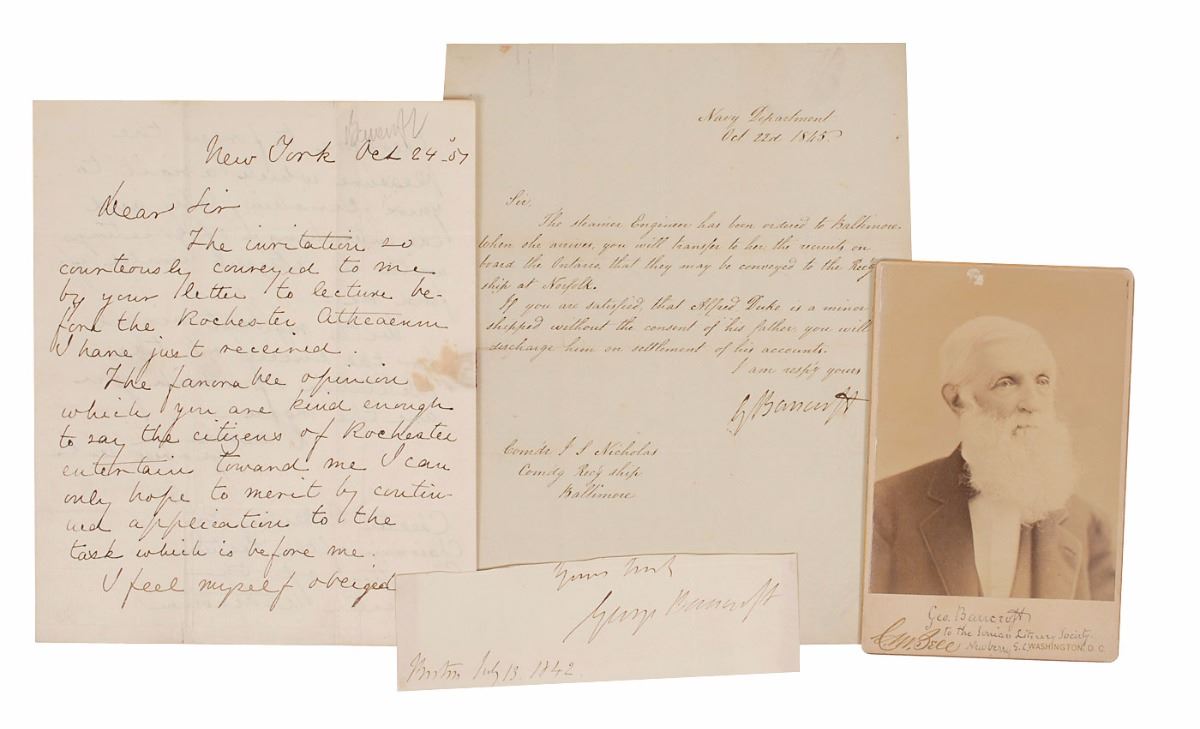 Bancroft
New York Oct 24 - 57
Dear Sir
The invitation so
courteously conveyed to me
by your letter to lecture be-
fore the Rochester Athenaeum
I have just received.
The favorable opinion
which you are kind enough
to say the citizens of Rochester
entertain toward me I can
only hope to merit by contin-
ued application to the
task which is before me.
I feel myself obliged
Navy Department
Oct 22d 1845.
Sir.
The steamer Engineer has been ordered to Baltimore.
when she arrives, you will transfer to her the recruits on
board the Ontario, that they may be conveyed to the Rec'g
ship at Norfolk.
If you are satisfied, that Alfred Duke is a minor
shipped without the consent of his father, you will
discharge him on settlement of his accounts.
I am resp'y yours
G Bancroft
Comdr J S Nicholas
Comdg Rec'g ship
Baltimore
Yours truly
George Bancroft
Boston July 13. 1842.
Geo. Bancroft
to the Literary Society
C.M. Bell Newberry S.C. WASHINGTON, D.C.